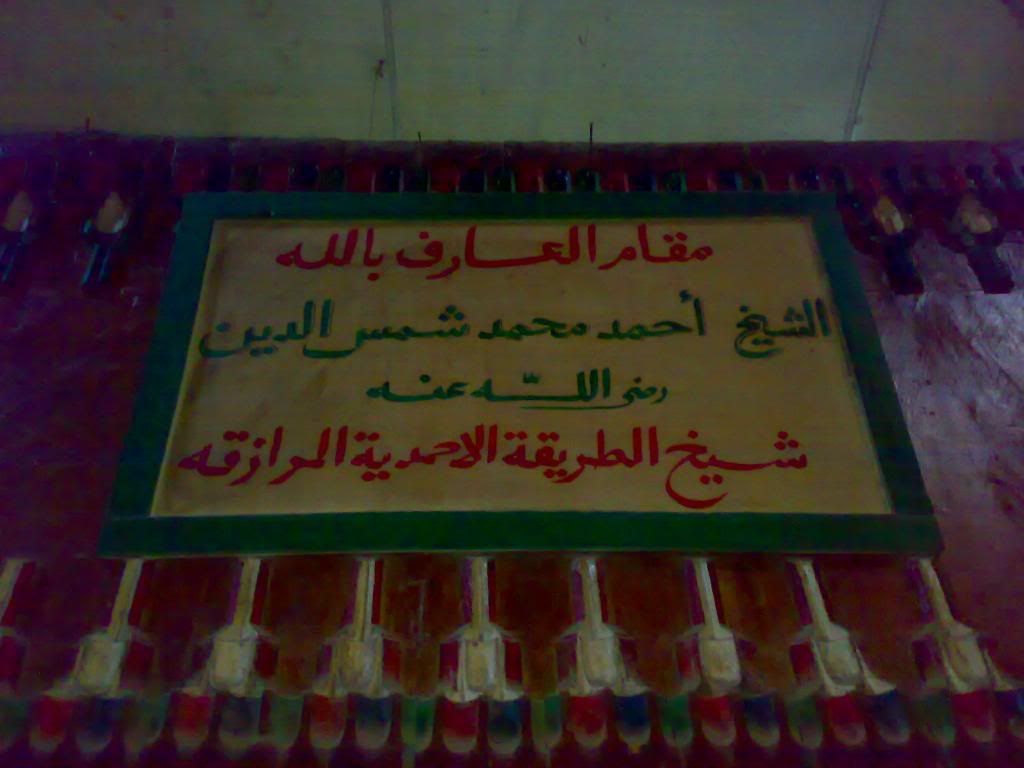 مقام العارف بالله
الشيخ أحمد محمد شمس الدين
رضى اللّه عنه
شيخ الطريقة الاحمدية المرازقه